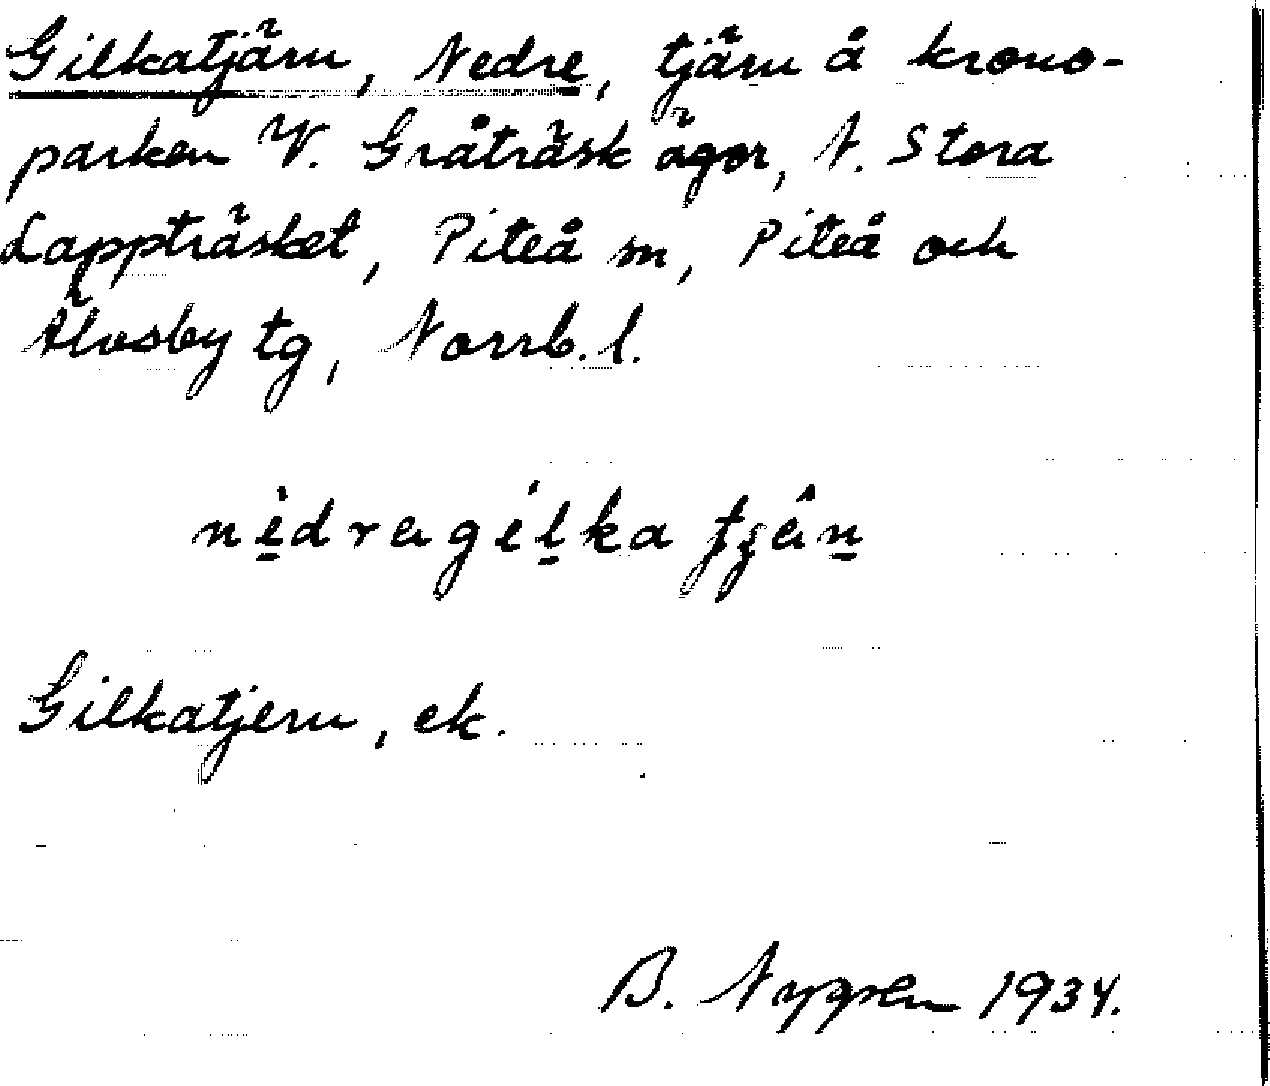 Gilkatjärn, Nedre, tjärn å krono-
parken V. Gråträsk ägor, N. Stora
Lappträsket, Piteå sn, Piteå och
Älvsby tg, Norrb. l.
Gilkatjern, ek.
B. Nygren 1934.